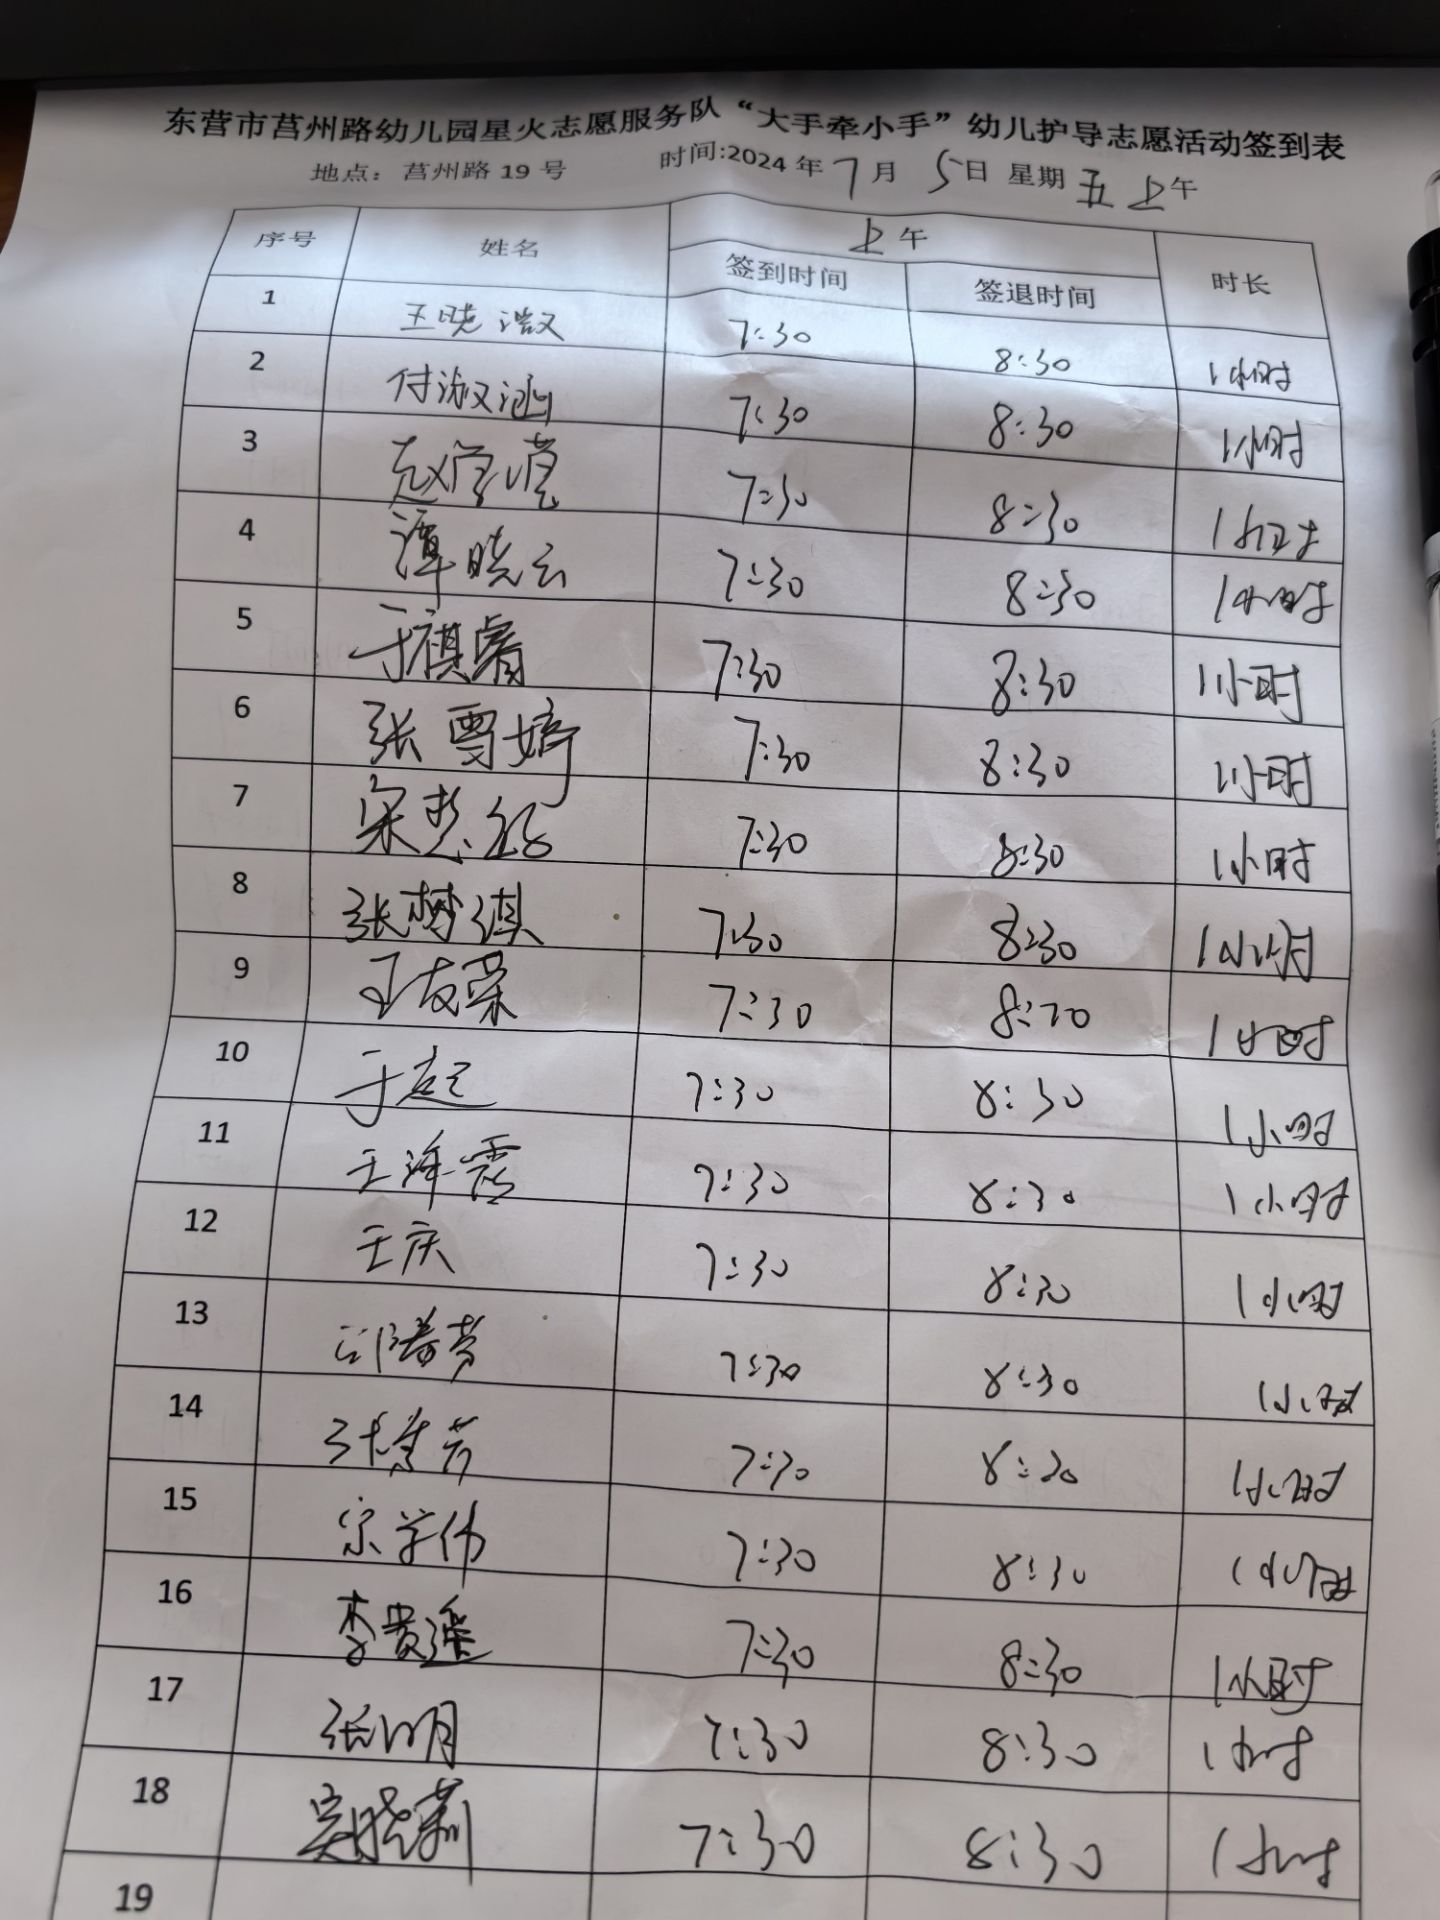 东营市莒州路幼儿园星火志愿服务队“大手牵小手”幼儿护导志愿活动签到表
地点：莒州路 19 号 时间:2024 年 7 月 5 日 星期 五 上午
序号 姓名 上午 时长
签到时间 签退时间
1 王晓 7:30 8:30 1小时
2 付淑涵 7:30 8:30 1小时
3 赵学莹 7:30 8:30 1小时
4 谭晓云 7:30 8:30 1小时
5 于祺睿 7:30 8:30 1小时
6 张雪婷 7:30 8:30 1小时
7 宋慧 7:30 8:30 1小时
8 张梦淇 7:30 8:30 1小时
9 王友荣 7:30 8:30 1小时
10 于 7:30 8:30 1小时
11 王泽霞 7:30 8:30 1小时
12 王庆 7:30 8:30 1小时
13 邵春芳 7:30 8:30 1小时
14 张 芳 7:30 8:30 1小时
15 宗学伟 7:30 8:30 1小时
16 李贵遥 7:30 8:30 1小时
17 张明 7:30 8:30 1小时
18 吴晓莉 7:30 8:30 1小时
19